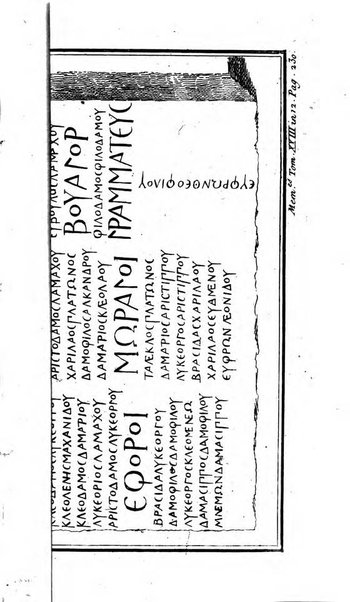 ΚΛΕΟΛΕΝΗϹΜΑΧΑΝΙΔΟΥ
ΚΛΕΟΔΑΜΟϹΔΑΜΑΤΡΙΟΥ
ΛΥΚΕΟΡΙΟϹΛΑΜΑΧΟΥ
ΑΡΙϹΤΟΔΑΜΟϹΛΥΚΕΟΡΓΟΥ
ΕΦΟΡΟΙ
ΒΡΑϹΙΔΑΛΥΚΕΟΡΓΟΥ
ΔΑΜΟΦΙΛΟϹΔΑΜΟΦΙΛΟΥ
ΛΥΚΕΟΡΓΟϹΚΛΕΟΜΕΝΕΩ
ΔΑΜΑϹΙΠΠΟϹΔΑΜΟΦΙΛΟΥ
ΜΝΕΜΩΝΔΑΜΑϹΙΠΠΟΥ
ΑΡΙϹΤΟΔΑΜΟϹΛΑΜΑΧΟΥ
ΧΑΡΙΛΑΟϹΠΛΑΤΩΝΟϹ
ΔΑΜΟΦΙΛΟϹΑΛΚΑΝΔΡΟΥ
ΔΑΜΑΤΡΙΟϹΚΛΕΟΛΑΟΥ
ΜΩΡΑΓΟΙ
ΤΑΛΕΚΛΟϹΠΛΑΤΩΝΟϹ
ΔΑΜΑΤΡΙΟϹΑΡΙϹΤΙΠΠΟΥ
ΛΥΚΕΟΡΓΟϹΑΡΙϹΤΙΠΠΟΥ
ΒΡΑϹΙΔΑϹΧΑΡΙΛΑΟΥ
ΧΑΡΙΛΑΟϹΕΥΔΙΜΕΝΟΥ
ΕΥΦΡΩΝΛΕΟΝΙΔΟΥ
ΒΟΥΑΓΟΡ
ΦΙΛΟΔΑΜΟϹΦΙΛΟΔΑΜΟΥ
ΓΡΑΜΜΑΤΕΥϹ
ΕΥΦΡΩΝΘΕΟΦΙΛΟΥ
Mem. et Tom. XXIII in 12. Pag. 230.